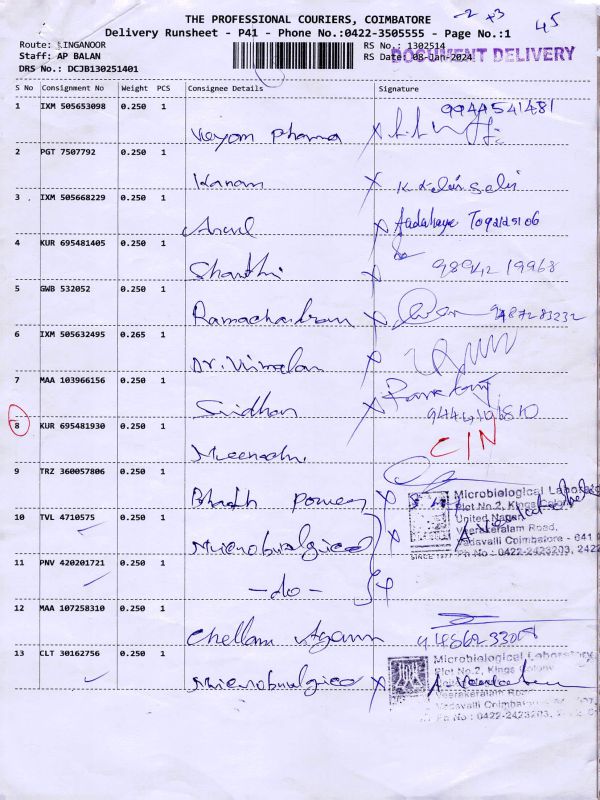 THE PROFESSIONAL COURIERS, COIMBATORE
-2 +3
45
Delivery Runsheet - P41 - Phone No.:0422-3505555 - Page No.:1
Route: LINGANOOR
RS No : 1302514
Staff: AP BALAN
RS Date: 08-Jan-2024
DOCUMENT DELIVERY
DRS No.: DCJB130251401
S No Consignment No Weight PCS Consignee Details Signature
1 IXM 505653098 0.250 1
9944541481
Pharma
2 PGT 7507792 0.250 1
Kanam
3 IXM 505668229 0.250 1
4 KUR 695481405 0.250 1
Shanthi
98942 19968
5 GWB 532052 0.250 1
Ramachandran
9487283232
6 IXM 505632495 0.265 1
Dr. Vimalan
7 MAA 103966156 0.250 1
Sridhar
8 KUR 695481930 0.250 1
CIN
9 TRZ 360057806 0.250 1
Microbiological Laboratory
Plot No.2, Kings Colony
United Nagar
Veerakeralam Road,
Vadavalli Coimbatore - 641
Ph No : 0422-2423203, 2422
SINCE 1977
10 TVL 4710575 0.250 1
11 PNV 420201721 0.250 1
-do-
12 MAA 107258310 0.250 1
Chellam
13 CLT 30162756 0.250 1
Microbiological Laboratory
Plot No.2, Kings Colony
Veerakeralam Road
Vadavalli Coimbatore
Ph No : 0422-2423203,